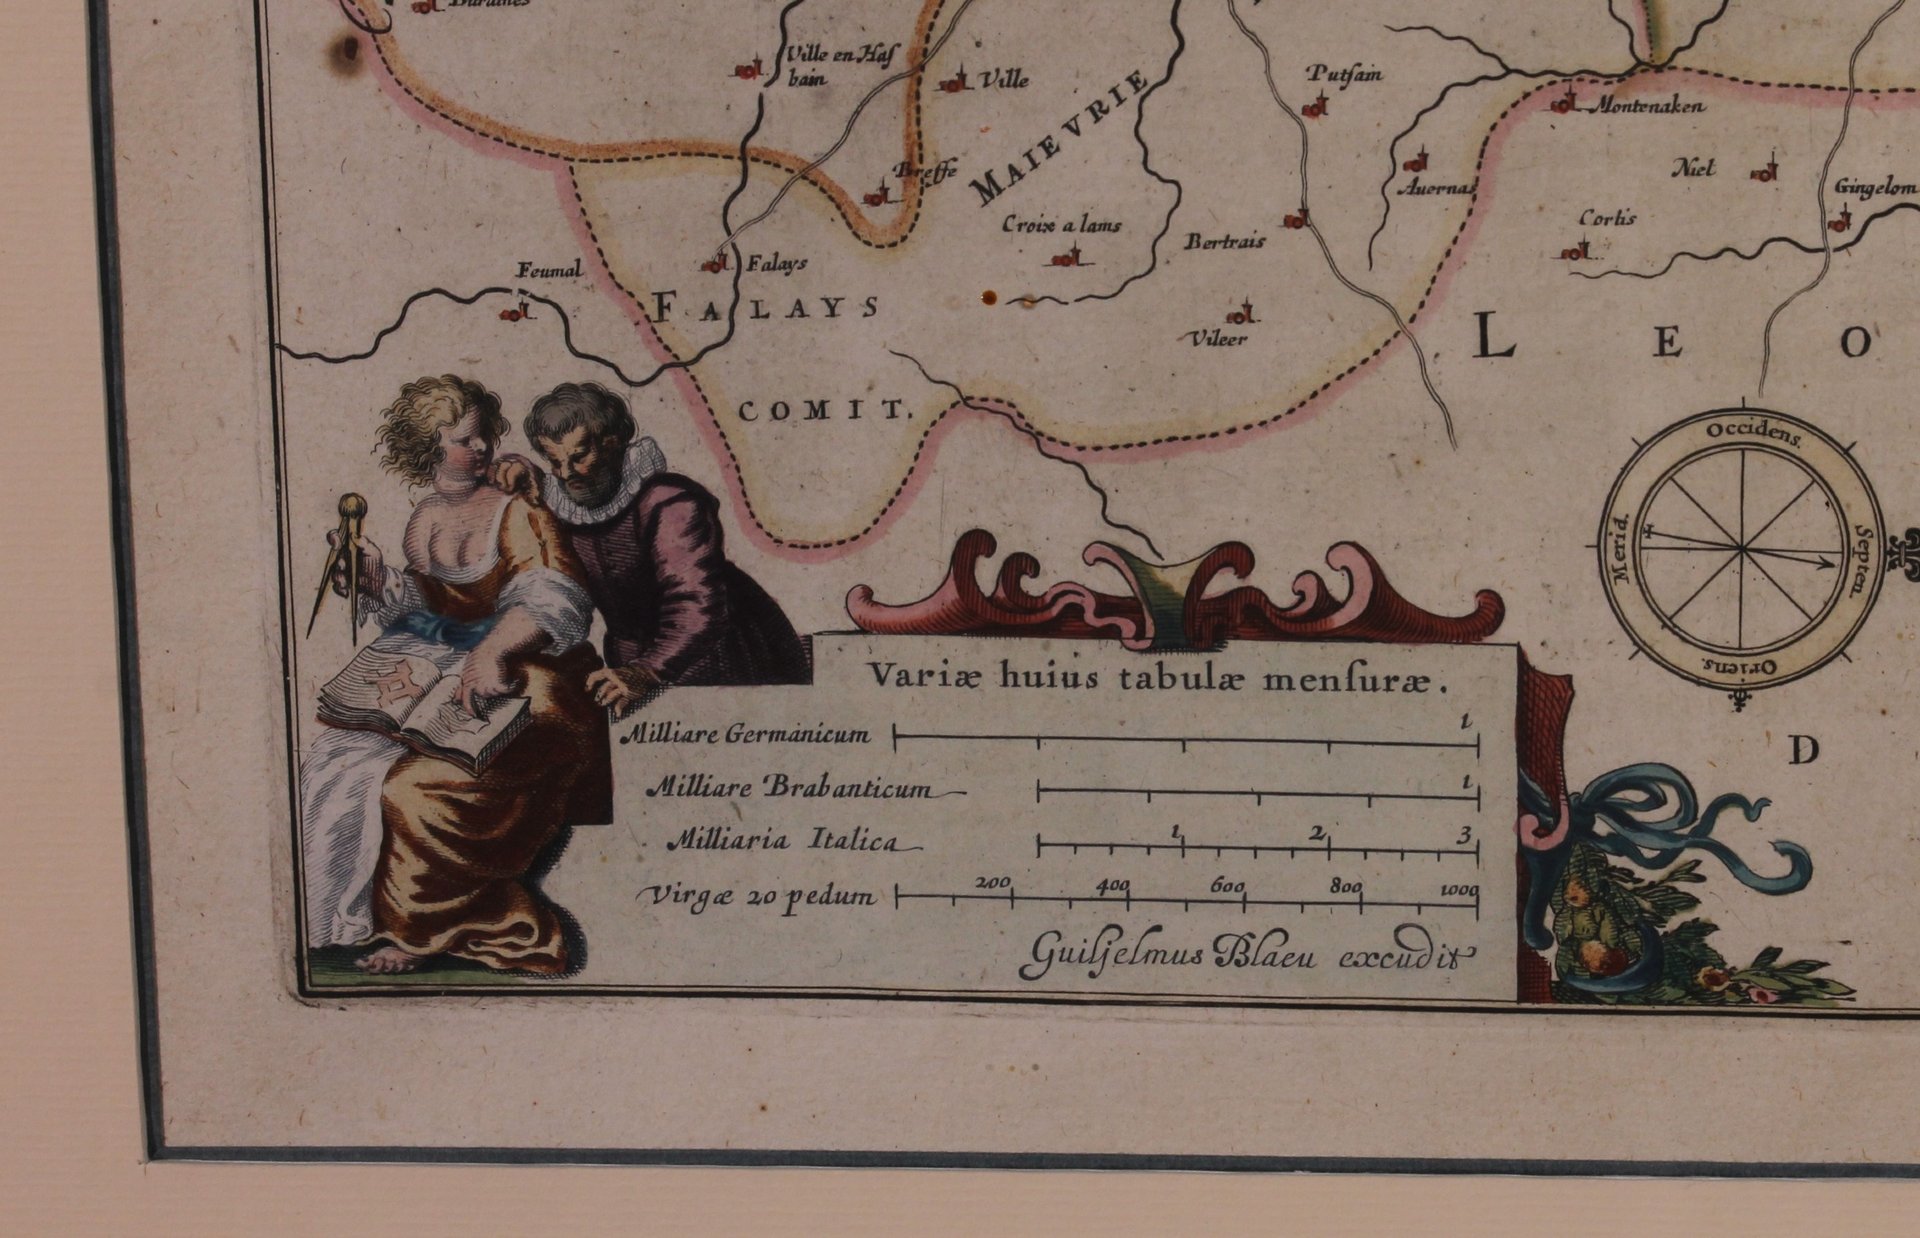 Ville en Haſ
bain
Ville
MAIEVRIE
Putſain
Montenaken
Breffe
Auernas
Niel
Gingelom
Croix a lams
Bertrais
Cortis
Feumal
Falays
FALAYS
Vileer
LEO
COMIT.
Occidens.
Merid.
Septen.
Oriens.
D
Variæ huius tabulæ menſuræ.
Milliare Germanicum 1
Milliare Brabanticum 1
Milliaria Italica 1 2 3
Virgæ 20 pedum 200 400 600 800 1000
Guiljelmus Blaeu excudit